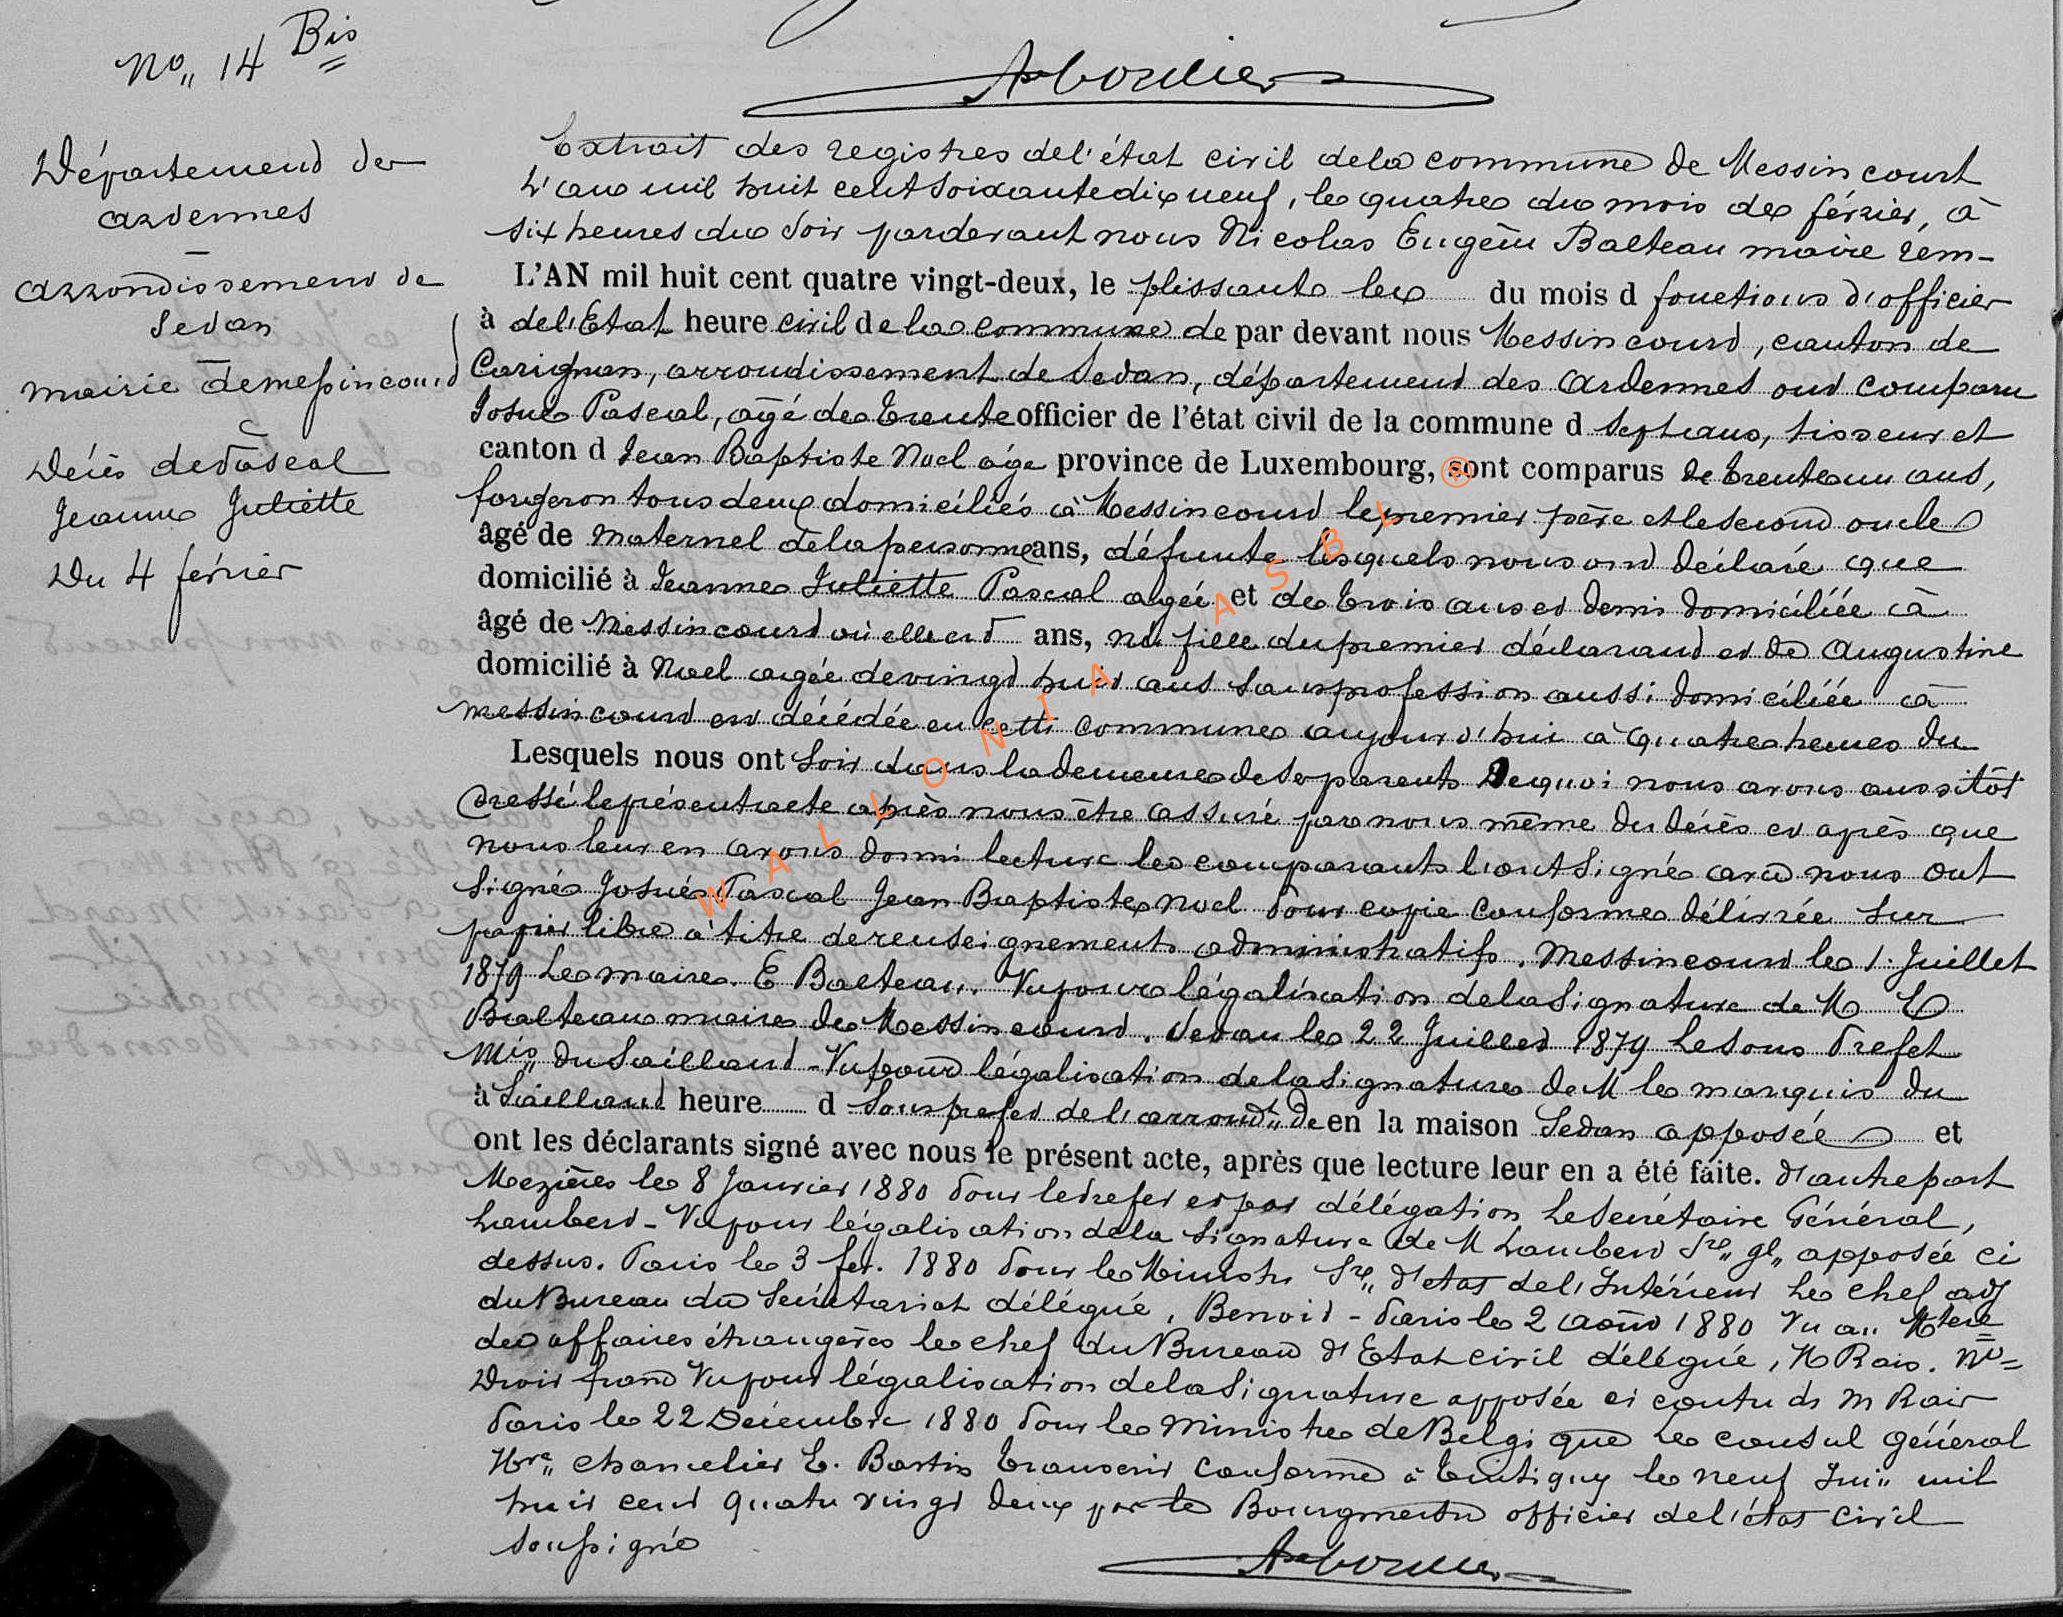 No„ 14 Bis
Département des
ardennes
arrondissement de
Sedan
mairie de messincourd
Décès de Pascal
Jeanne Juliette
Du 4 février
Extrait des registres de l'état civil de la commune de Messincourt
L'an mil huit cent soixante dix neuf, le quatre du mois de février, à
six heures du soir par devant nous Nicolas Eugène Balteau maire rem-
L'AN mil huit cent quatre vingt-deux, le plissant les du mois d fonctions d'officier
à de l'Etat heure civil de la commune de par devant nous Messincourd, canton de
Carignan, arroudissement de Sedan, département des ardennes ond comparu
Josué Pascal, âgé de trente officier de l'état civil de la commune d sept ans, tisseur et
canton d Jean Baptiste Noel âge province de Luxembourg, sont comparus de trente un ans,
forgeron tous deux domiciliés à Messincourd le premier père et le second oncle
âgé de maternel de la personne ans, défunte lesquels nous ond déclaré que
domicilié à Jeanne Juliette Pascal agée et de trois ans et demi domiciliée à
âgé de Messincourd où elle est ans, née fille du premier déclarand et de Augustine
domicilié à Noel agée de vingt huit ans sans profession aussi domiciliée à
messincourd est décédée en cette commune aujourd'hui à quatre heures du
Lesquels nous ont soir dans la demeure de ses parents De quoi nous avons aussitôt
dressé le présent acte après nous être assuré par nous même du décès et après que
nous leur en avons donné lecture les comparants l'ont signé avec nous ont
signé Josué Pascal Jean Baptiste Noel Pour copie conforme délivrée sur
papier libre à titre de renseignements administratifs. Messincourd le 1. Juillet
1879 Le maire E Balteau. Vu pour légalisation de la signature de M E
Balteau maire de Messincourd. Sedan le 22 Juillet 1879 Le sous Prefet
Mis„ du Sailland - Vu pour légalisation de la signature de M le marquis du
à Sailland heure d Sous prefet de l'arrondt„ De en la maison Sedan apposée et
ont les déclarants signé avec nous le présent acte, après que lecture leur en a été faite. d'autre part
Mezières le 8 Janvier 1880 Pour le Prefet et par délégation Le Secrétaire Général,
Lamberd - Vu pour légalisation de la signature de M Lamberd Sre„ gl„ apposée ci
dessus. Paris le 3 fev. 1880 Pour le Ministre Sre„ d'etat de l'Intérieur Le chef adj
du Bureau du Secrétariat délégué, Benoid - Paris le 2 août 1880 Vu au Mtere
des affaires étrangères le chef du Bureau d'Etat civil délégué, N Rais. No=
Droit franc Vu pour légalisation de la signature apposée ci contre de M Rais
Paris le 22 Décembre 1880 Pour le Ministre de Belgique Le consul général
Hre„ chancelier E. Bastin Transcrit conforme à Tintigny le neuf Jui„ mil
huit cent quatre vingt deux par le Bourgmestre officier de l'état civil
soussigné
WALLONIA ASBL ®